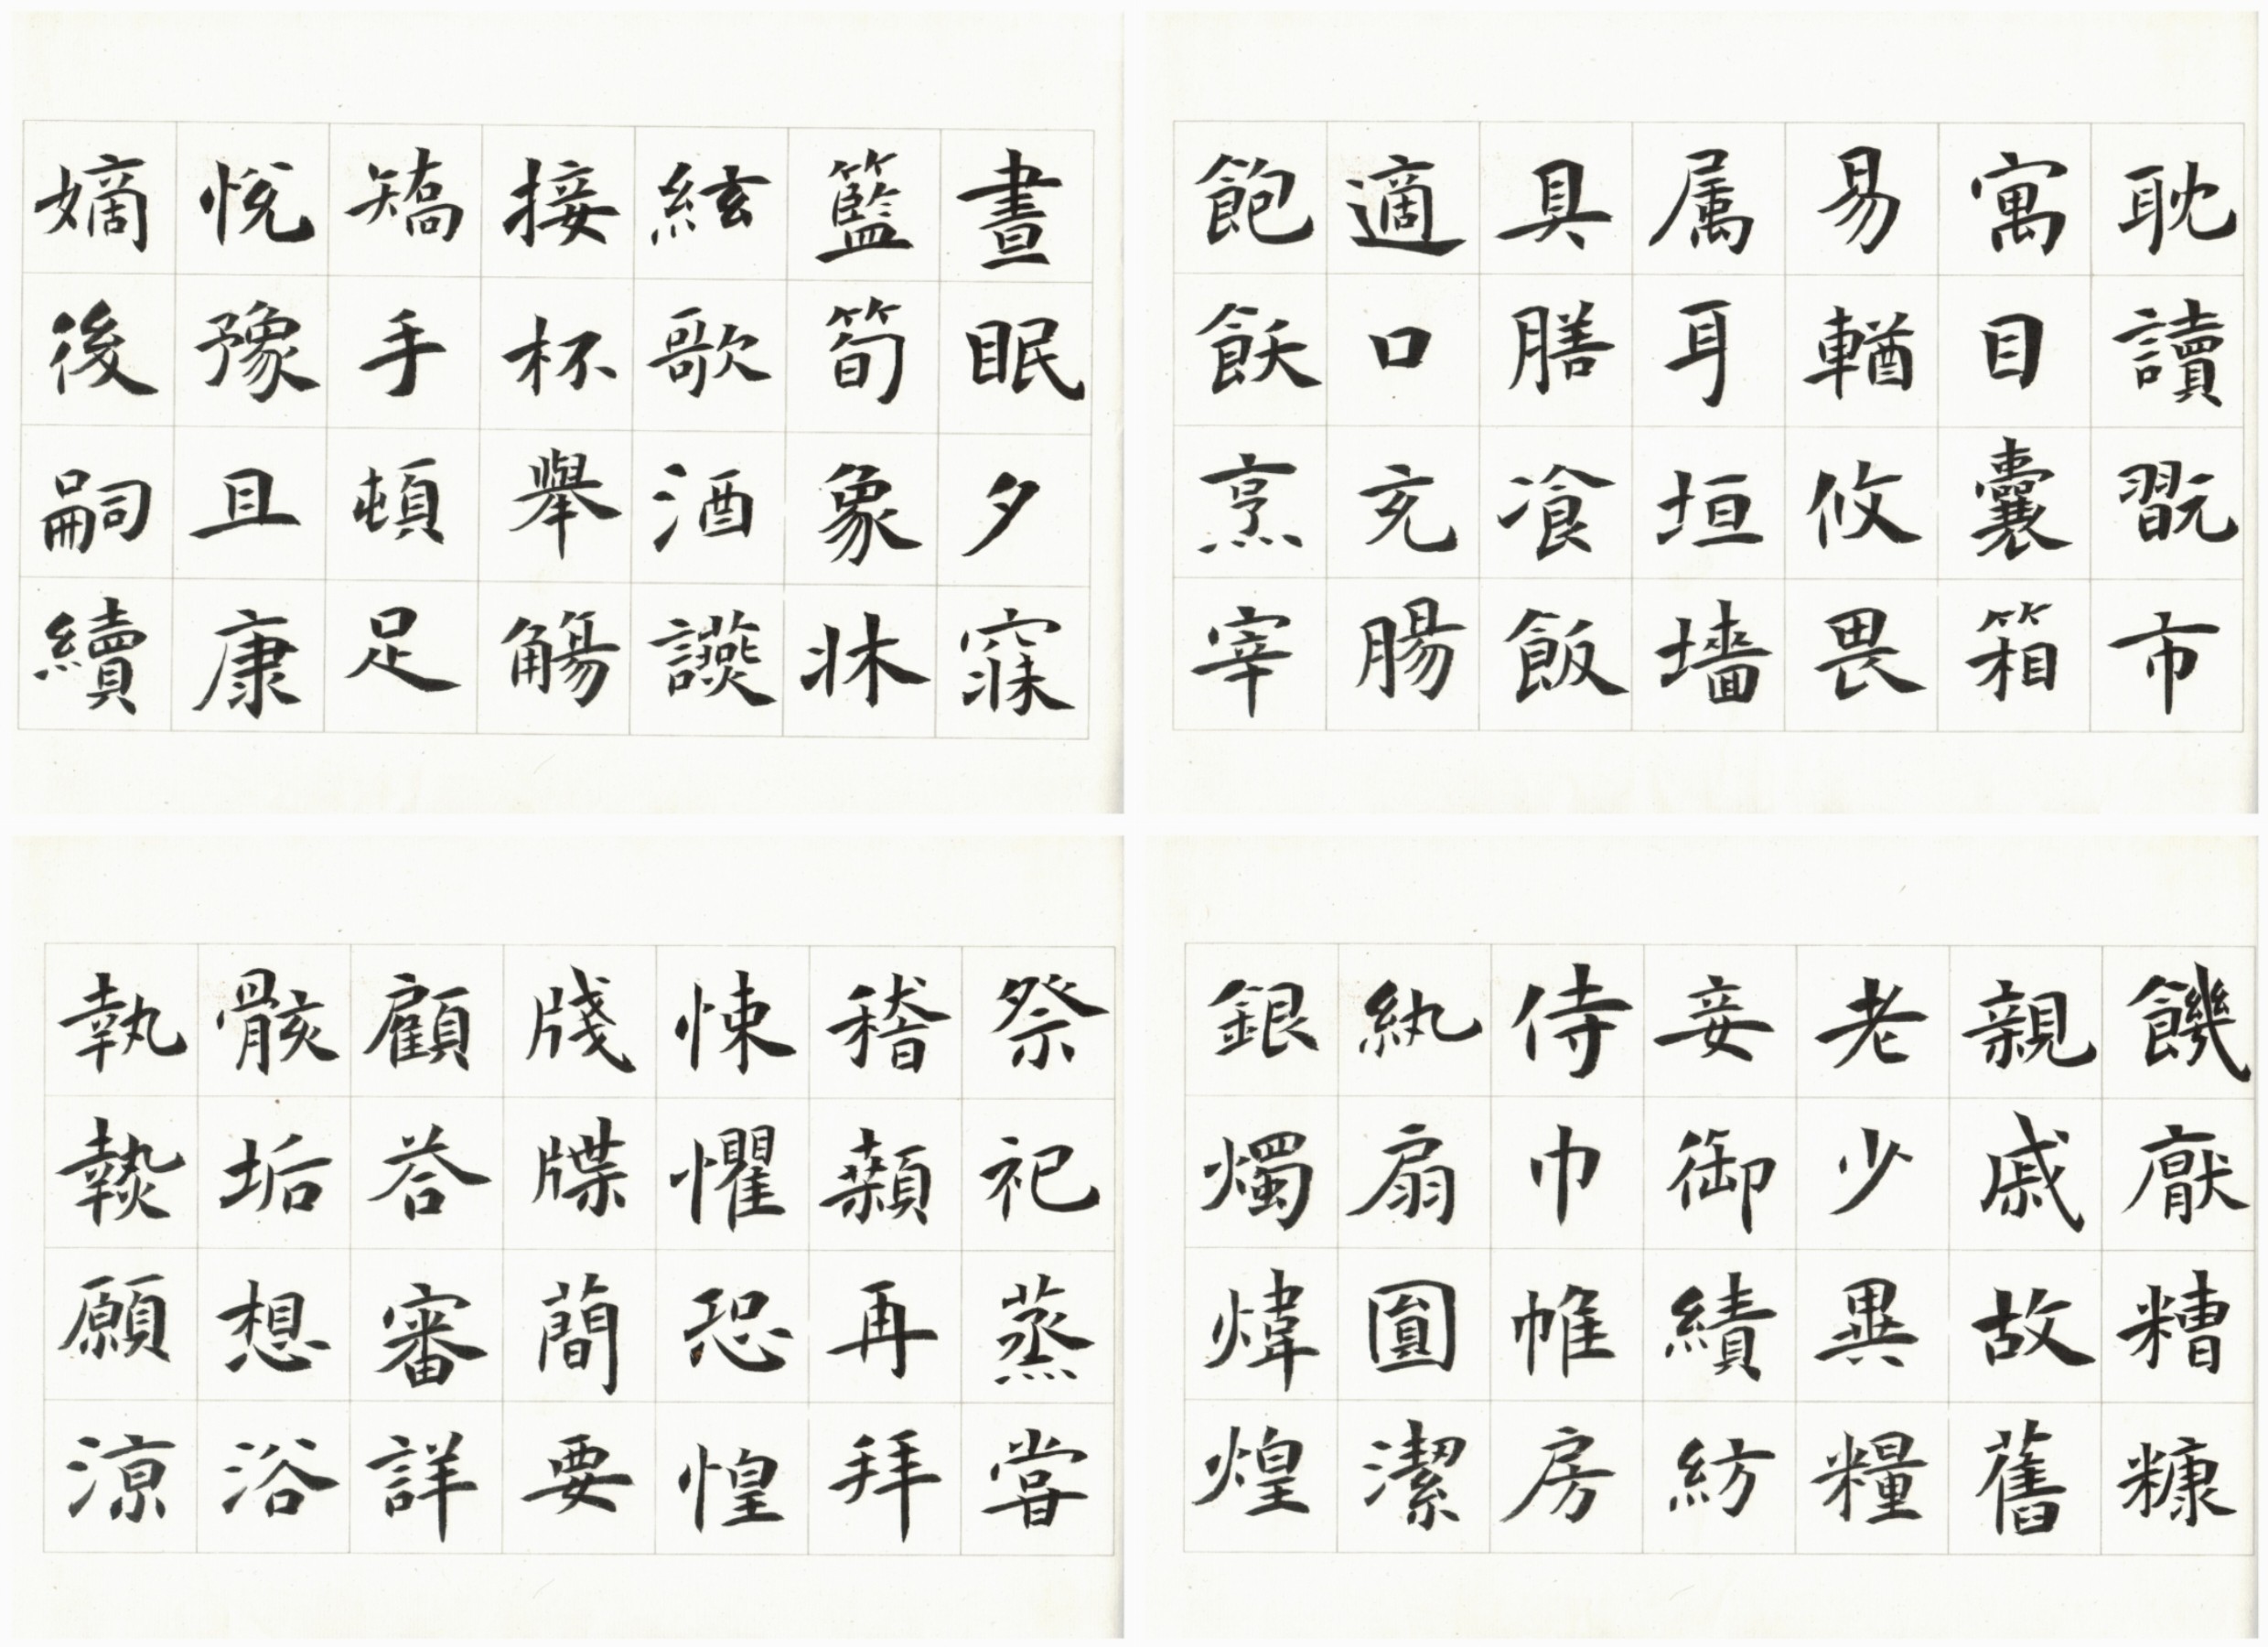 耽讀翫市
寓目囊箱
易輶攸畏
属耳垣墻
具膳飡飯
適口充腸
飽飫烹宰
饑厭糟糠
親戚故舊
老少異糧
妾御績紡
侍巾帷房
紈扇圓潔
銀燭煒煌
晝眠夕寐
籃筍象牀
絃歌酒讌
接杯舉觴
矯手頓足
悅豫且康
嫡後嗣續
祭祀蒸甞
稽顙再拜
悚懼恐惶
牋牒蕳要
顧荅審詳
骸垢想浴
執熱願涼